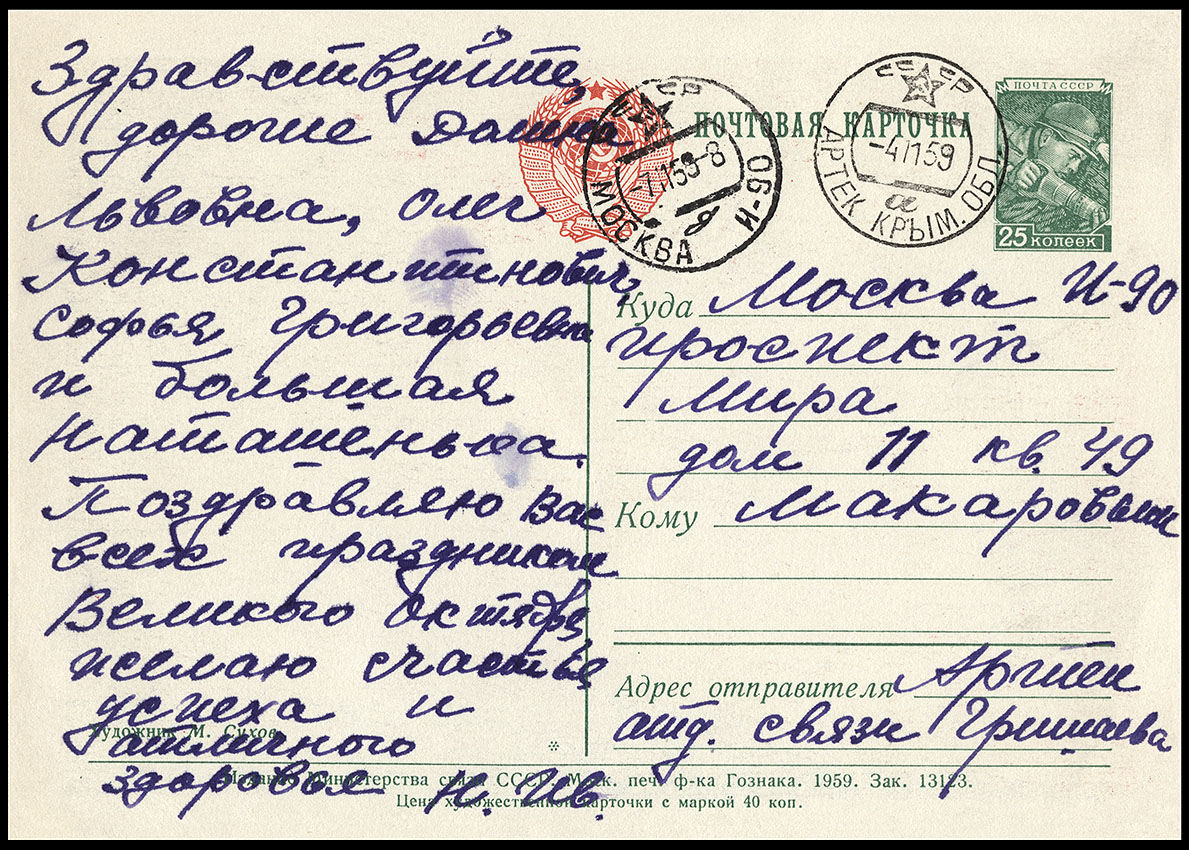 Здравствуйте,
дорогие Даина
Львовна, Олег
Константинович,
Софья Григорьевна
и большая
Наташенька.
Поздравляю Вас
всех праздником
Великого Октября,
желаю счастья,
успеха и
отличного
здоровья Н. Ив.
Художник М. Сухов
*
СССР
МОСКВА
-71159-8
И-90
ПОЧТОВАЯ КАРТОЧКА
СССР
АРТЕК КРЫМ. ОБЛ.
-41159
а
ПОЧТА СССР
25 КОПЕЕК
Куда Москва И-90
проспект
Мира
дом 11 кв. 49
Кому Макаровым
Адрес отправителя Артек
отд. связи Гришаева
Издание Министерства связи СССР. Моск. печ. ф-ка Гознака. 1959. Зак. 13123.
Цена художественной карточки с маркой 40 коп.